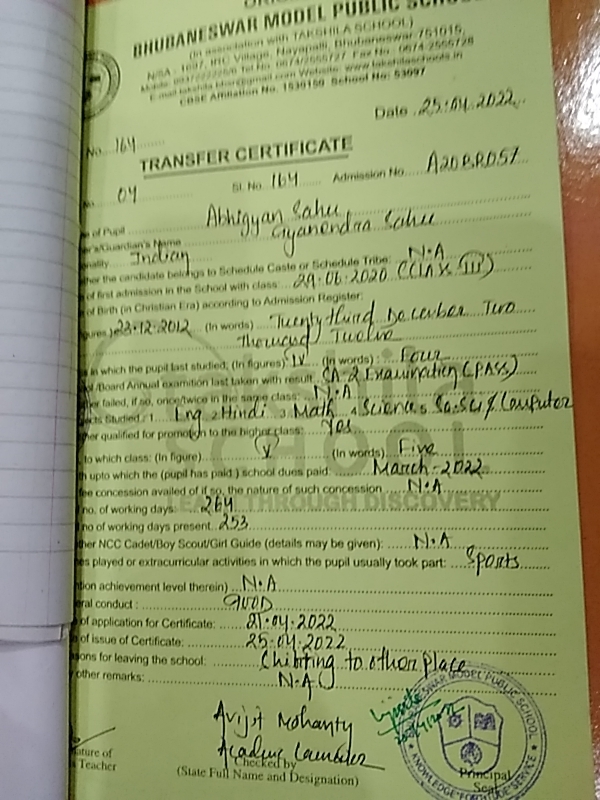 BHUBANESWAR MODEL PUBLIC SCHOOL
(In association with TAKSHILA SCHOOL)
N/SA - 1697, IRC Village, Nayapalli, Bhubaneswar-751015,
Tel.No. 0674/2555727 Fax No. 0674-2555728
Website: www.takshilaschools.in
CBSE Affiliation No. 1530150 School No: 53097
Date 25.04.2022
No. 164
TRANSFER CERTIFICATE
04 Sl. No. 164 Admission No. A20BRD057
e of Pupil Abhigyan Sahu
er's/Guardian's Name Gyanendra Sahu
onality Indian
her the candidate belongs to Schedule Caste or Schedule Tribe: N.A
of first admission in the School with class: 29.06.2020 (CLASS III)
of Birth (in Christian Era) according to Admission Register:
gures) 23.12.2012 (In words) Twenty third December Two
Thousand Twelve
s in which the pupil last studied, (In figures) IV (In words) : Four
ol /Board Annual examition last taken with result: SA-2 Examination (PASS)
her failed, if so, once/twice in the same class: N.A
ects Studied : 1. Eng, Hindi, Math, Science, So.Sci, Computer
her qualified for promotion to the higher class: Yes
to which class: (In figure) (V) (In words) Five
h upto which the (pupil has paid) school dues paid: March-2022
fee concession availed of if so, the nature of such concession N.A
THROUGH DISCOVERY
l no. of working days: 264
no of working days present 253
her NCC Cadet/Boy Scout/Girl Guide (details may be given): N.A
es played or extracurricular activities in which the pupil usually took part: Sports
tion achievement level therein) N.A
eral conduct : GOOD
of application for Certificate: 21.04.2022
of issue of Certificate: 25.04.2022
sons for leaving the school: Shifting to other place
other remarks: N.A
Avijit Mohanty
ature of
s Teacher
Checked by
(State Full Name and Designation)
Principal
Seal
BHUBANESWAR MODEL PUBLIC SCHOOL
KNOWLEDGE FORTITUDE SERVICE